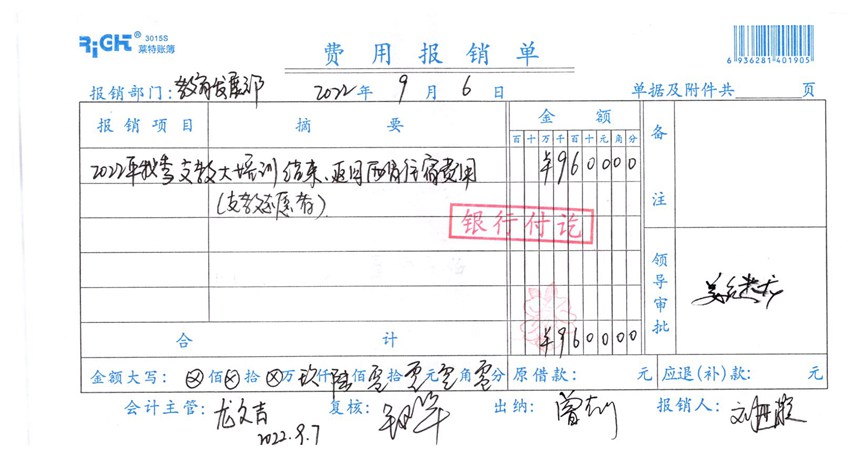 RiGHT® 3015S
莱特账簿
费用报销单
6 936281 401905
报销部门:教育发展部 2022年 9月 6日 单据及附件共 页
报销项目 摘要 金额 备注
百十万千百十元角分
2022年秋季支教大培训结束、返回西宿住宿费用 ¥960000
(支教志愿者)
银行付讫
领导审批
合计 ¥960000
金额大写:⊗佰⊗拾⊗万玖仟陆佰零拾零元零角零分 原借款: 元 应退(补)款: 元
会计主管:龙文吉 复核: 出纳: 报销人:
2022.9.7